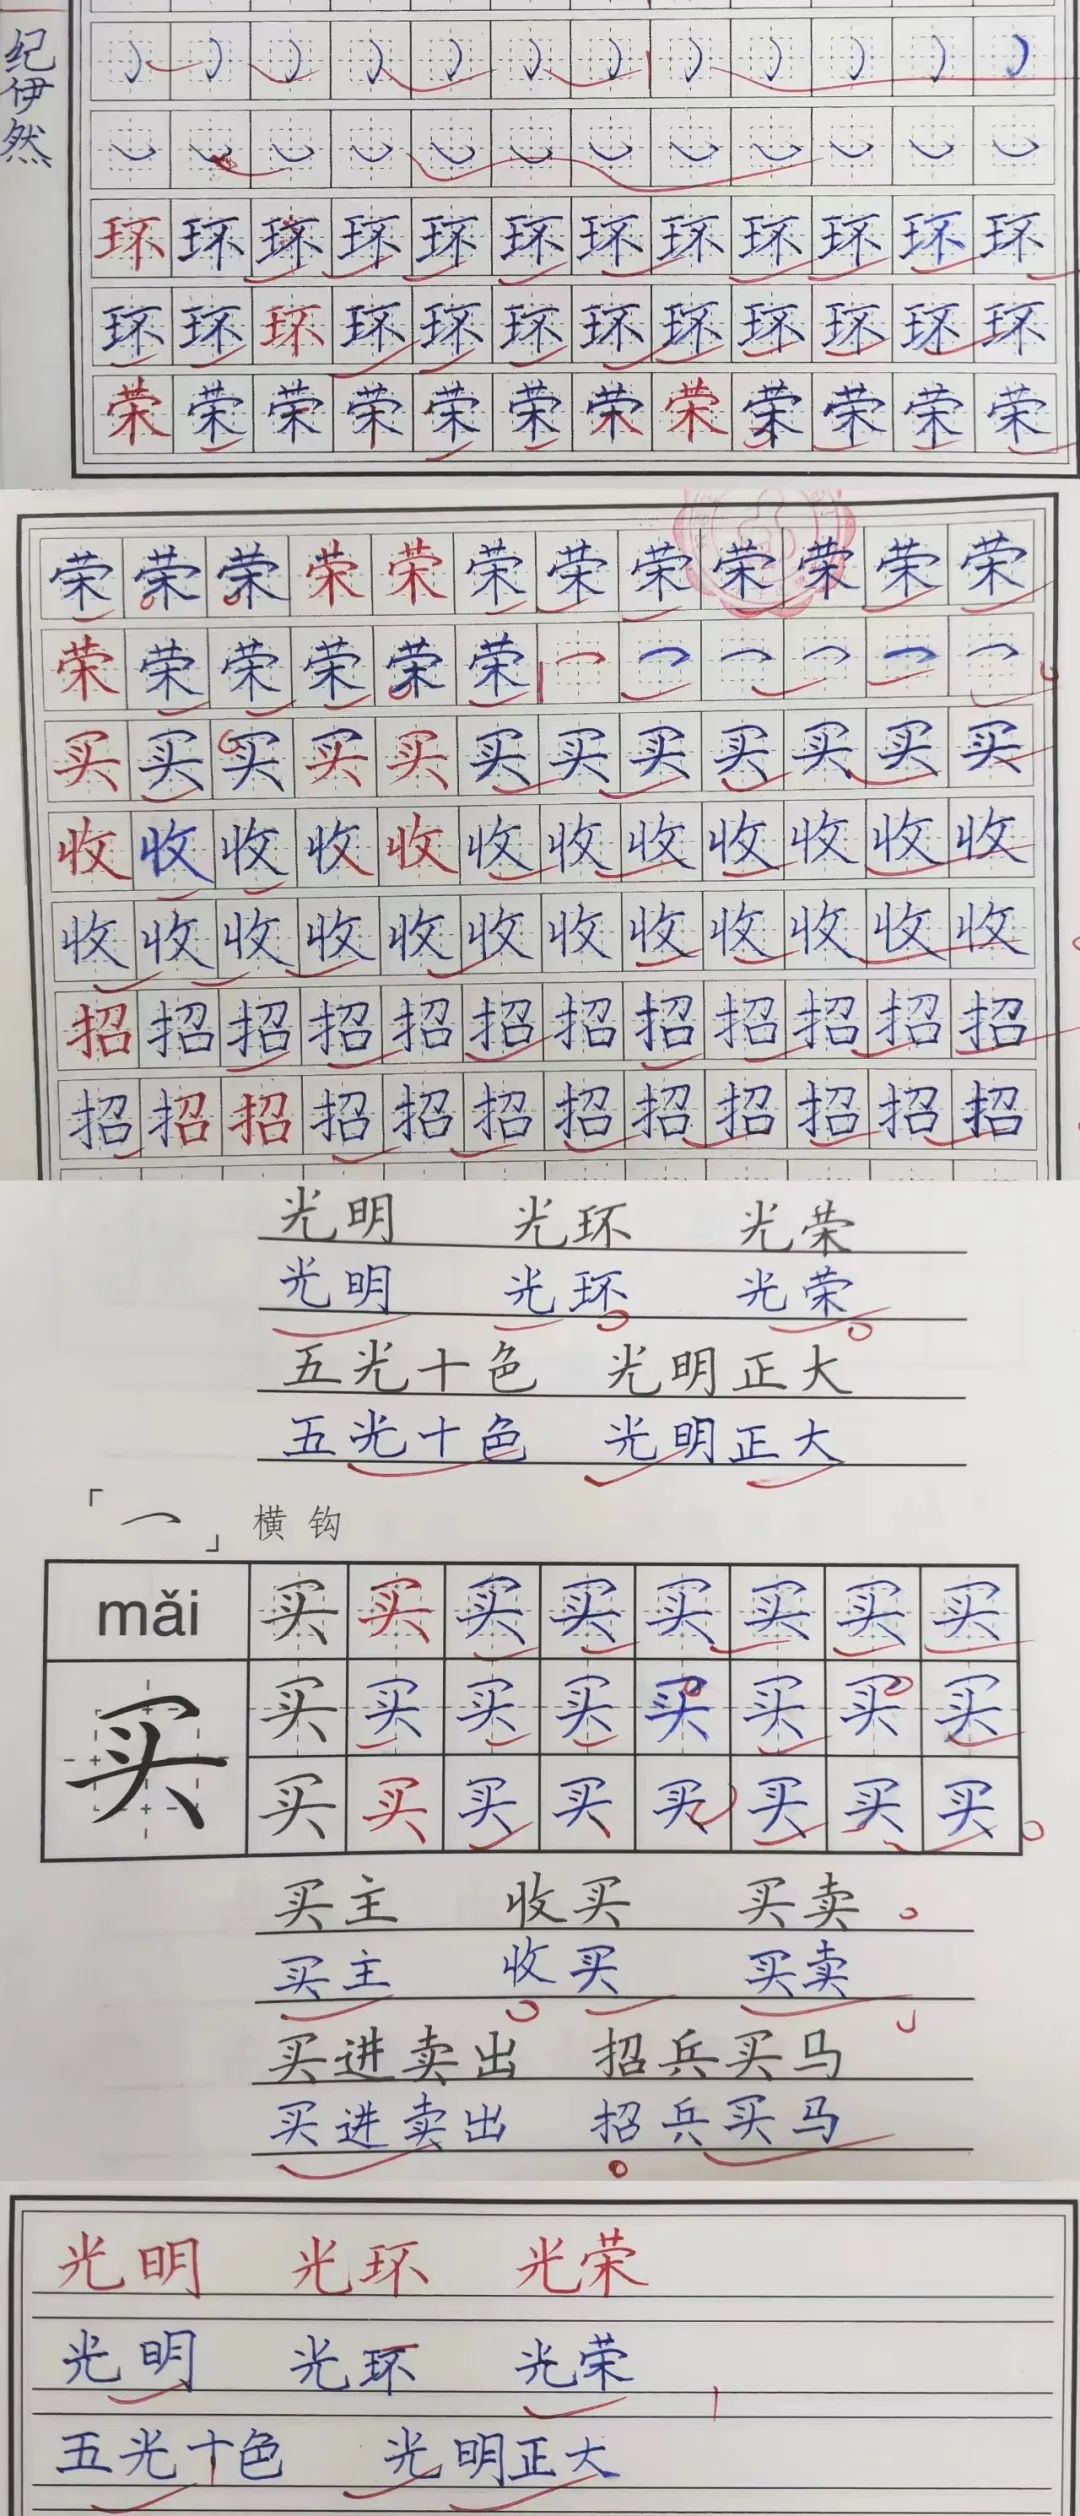 纪伊然
环环环环环环环环环环环环
环环环环环环环环环环环环
荣荣荣荣荣荣荣荣荣荣荣荣
荣荣荣荣荣荣荣荣荣荣荣荣
荣荣荣荣荣荣
买买买买买买买买买买买买
收收收收收收收收收收收收
收收收收收收收收收收收收
招招招招招招招招招招招招
招招招招招招招招招招招招
光明 光环 光荣
光明 光环 光荣
五光十色 光明正大
五光十色 光明正大
「㇖」 横钩
mǎi 买买买买买买买买
买 买买买买买买买买
买买买买买买买买
买主 收买 买卖
买主 收买 买卖
买进卖出 招兵买马
买进卖出 招兵买马
光明 光环 光荣
光明 光环 光荣
五光十色 光明正大